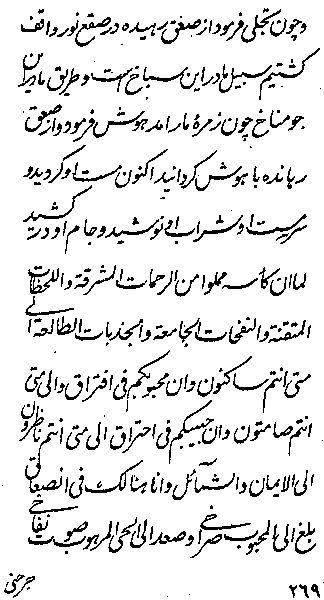 و چون تجلی فرمود از صعق رهیده در صقع نور واقف
گشتیم سبیل ما در این سباخ است و طریق ما در این
جو مناخ چون زمرهٔ ما را مدهوش فرمود و از صعق
رهانده با هوش گردانید اکنون مست او گردید و
سرمست او شراب او نوشید و جام او در کشید
لما ان کأسه مملوا من الرحمات المشرقة و اللحظات
المتقنة و النفحات الجامعة و الجذبات الطالعة الی
متی انتم ساکنون و ان محبوبکم فی افتراق و الی متی
انتم صامتون و ان حبیبکم فی احتراق الی متی انتم ناظرون
الی الایمان و الشمآئل و انا هنالک فی انصعاق
بلغ الی المحبوب صراخی و صعد الی الحی المرهوب صوت نفاخی
۲۶۹